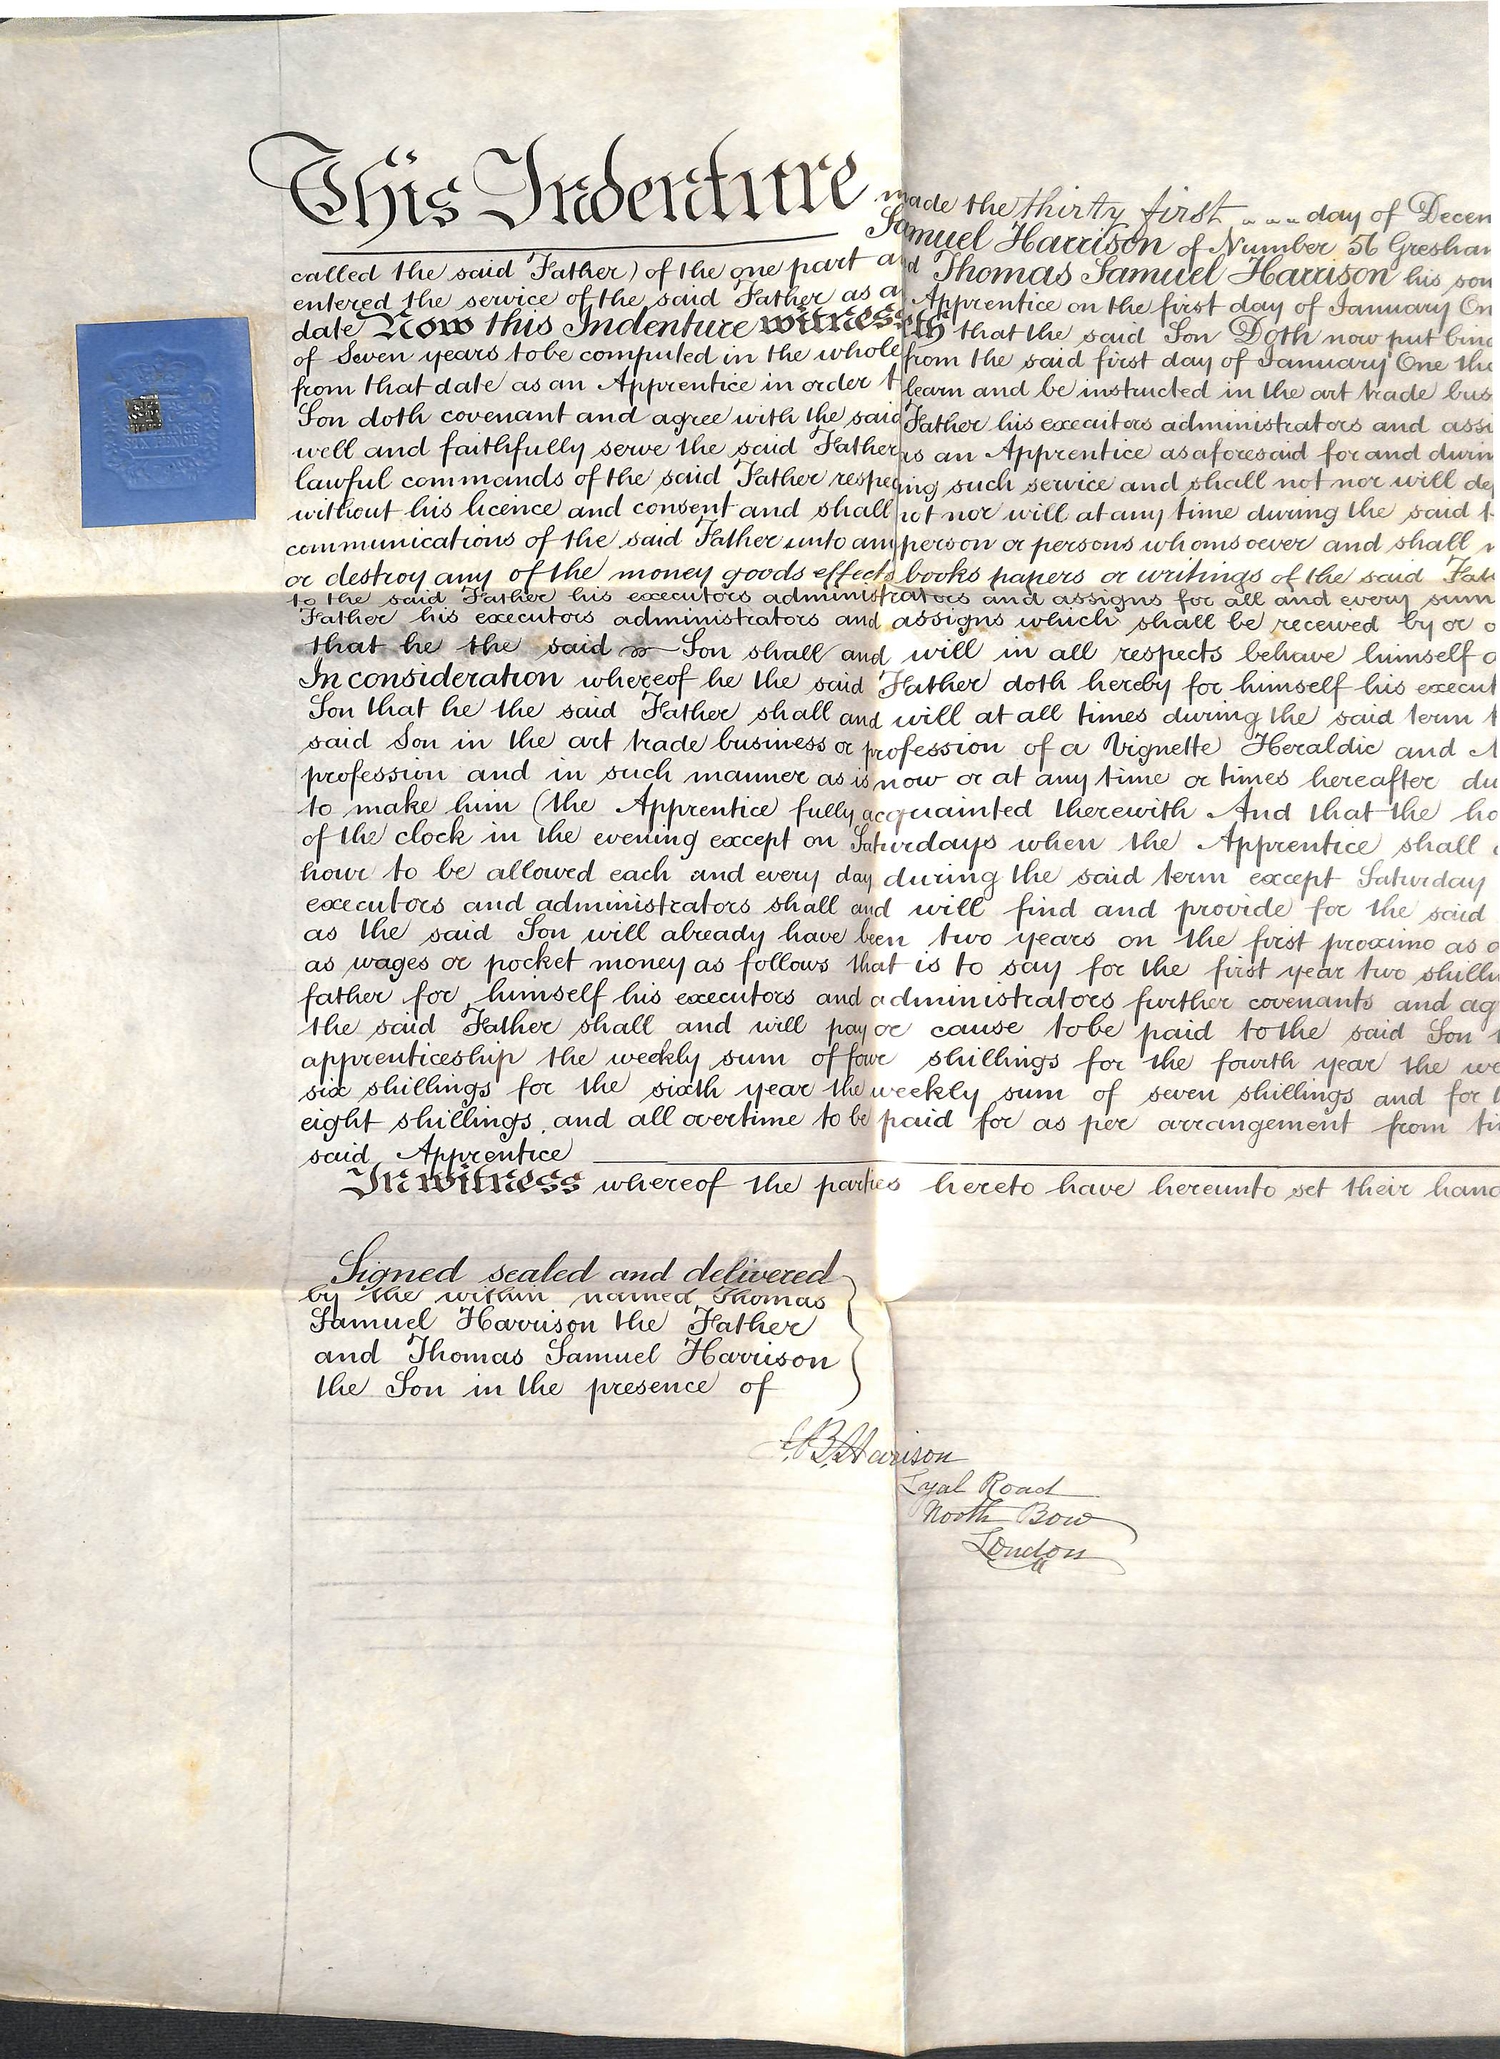 This Indenture made the thirty first " " " day of Decem
Samuel Harrison of Number 56 Gresham
called the said Father) of the one part and Thomas Samuel Harrison his son
entered the service of the said Father as an Apprentice on the first day of January On
date Now this Indenture witnesseth that the said Son Doth now put bind
of Seven years to be computed in the whole from the said first day of January One tho
from that date as an Apprentice in order to learn and be instructed in the art trade bus
Son doth covenant and agree with the said Father his executors administrators and assi
well and faithfully serve the said Father as an Apprentice as aforesaid for and durin
lawful commands of the said Father respecting such service and shall not nor will de
without his licence and consent and shall not nor will at any time during the said t
communications of the said Father unto any person or persons whomsoever and shall n
or destroy any of the money goods effects books papers or writings of the said Fath
to the said Father his executors administrators and assigns for all and every sum
Father his executors administrators and assigns which shall be received by or o
that he the said Son shall and will in all respects behave himself a
In consideration whereof he the said Father doth hereby for himself his execut
Son that he the said Father shall and will at all times during the said term t
said Son in the art trade business or profession of a Vignette Heraldic and
profession and in such manner as is now or at any time or times hereafter du
to make him (the Apprentice) fully acquainted therewith And that the ho
of the clock in the evening except on Saturdays when the Apprentice shall
hour to be allowed each and every day during the said term except Saturday
executors and administrators shall and will find and provide for the said
as the said Son will already have been two years on the first proximo as a
as wages or pocket money as follows that is to say for the first year two shillin
father for himself his executors and administrators further covenants and ag
the said Father shall and will pay or cause to be paid to the said Son
apprenticeship the weekly sum of four shillings for the fourth year the we
six shillings for the sixth year the weekly sum of seven shillings and for t
eight shillings, and all overtime to be paid for as per arrangement from ti
said Apprentice
In witness whereof the parties hereto have hereunto set their hand
Signed sealed and delivered
by the within named Thomas
Samuel Harrison the Father
and Thomas Samuel Harrison
the Son in the presence of
Harrison
Lyal Road
North Bow
London
SIX PENCE